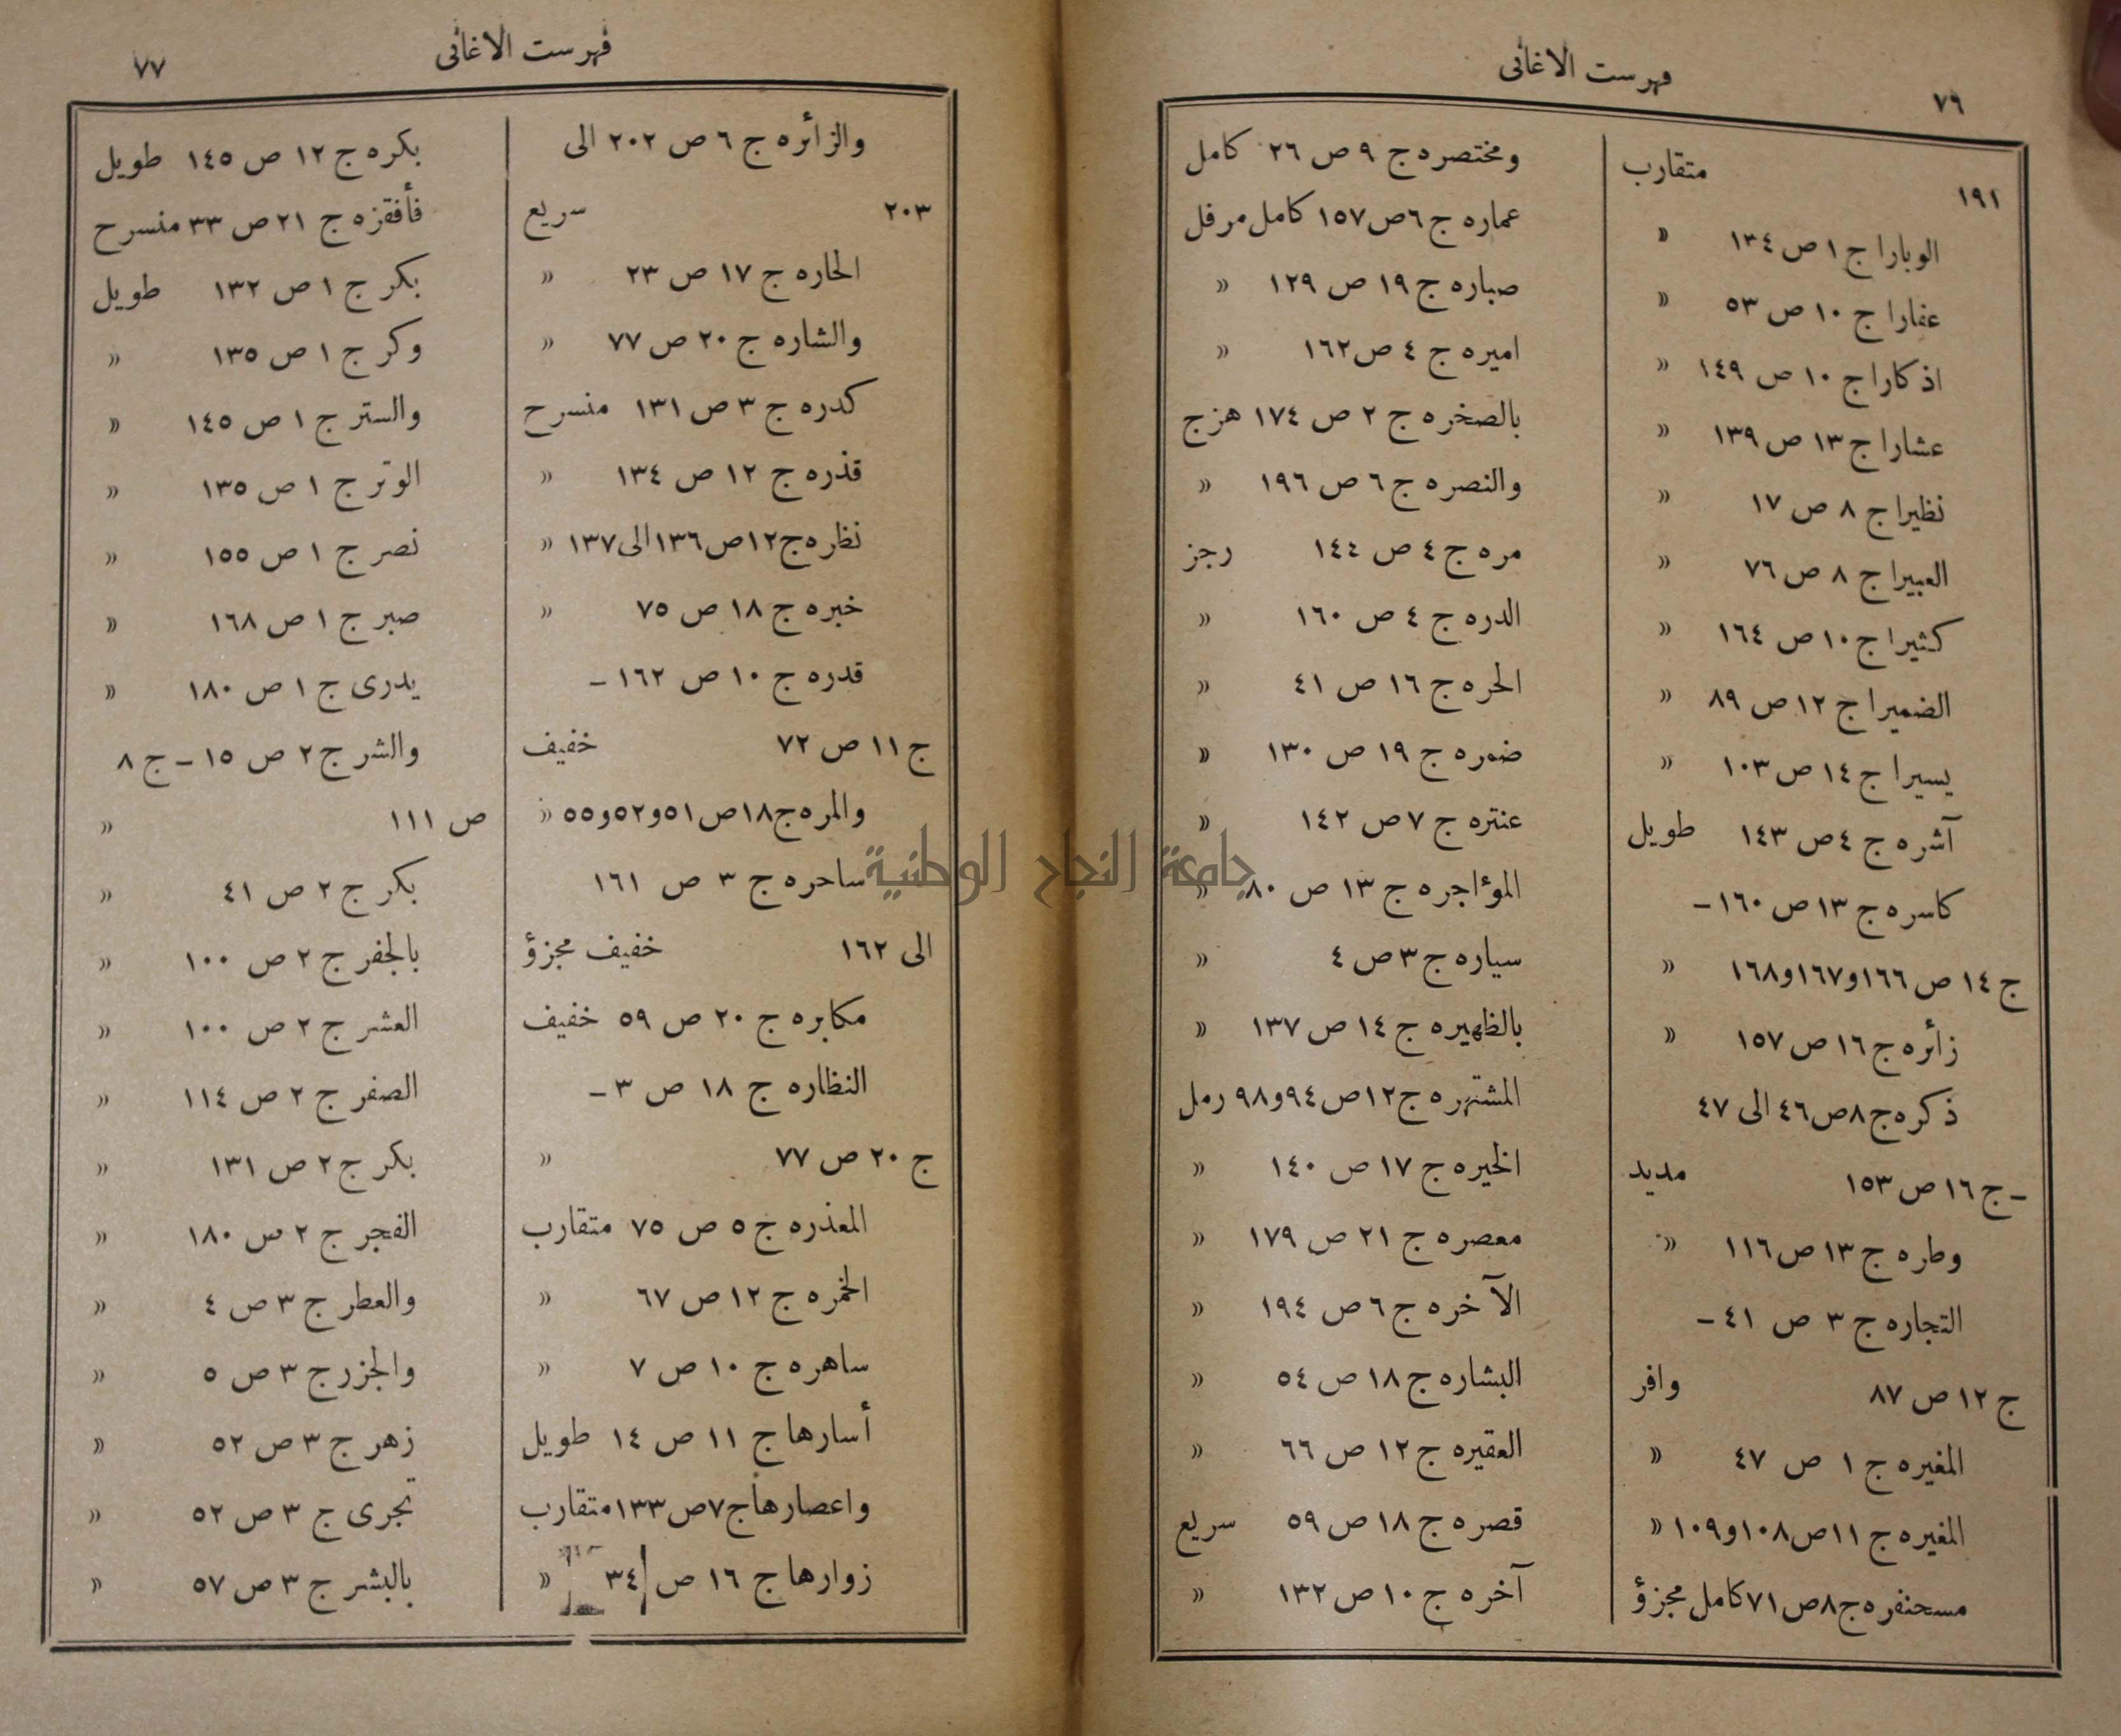 ٧٦
فهرست الاغانى
١٩١ متقارب
الوبارا ج ١ ص ١٣٤ «
عفارا ج ١٠ ص ٥٣ «
اذكارا ج ١٠ ص ١٤٩ «
عشارا ج ١٣ ص ١٣٩ «
نظيرا ج ٨ ص ١٧ «
العبيرا ج ٨ ص ٧٦ «
كثيرا ج ١٠ ص ١٦٤ «
الضميرا ج ١٢ ص ٨٩ «
يسيرا ج ١٤ ص ١٠٣ «
آشره ج ٤ ص ١٤٣ طويل
كاسره ج ١٣ ص ١٦٠ –
ج ١٤ ص ١٦٦ و١٦٧ و١٦٨ «
زائره ج ١٦ ص ١٥٧ «
ذكره ج ٨ ص ٤٦ الى ٤٧
– ج ١٦ ص ١٥٣ مديد
وطره ج ١٣ ص ١١٦ «
التجاره ج ٣ ص ٤١ –
ج ١٢ ص ٨٧ وافر
المغيره ج ١ ص ٤٧ «
المغيره ج ١١ ص ١٠٨ و١٠٩ «
مسحنفره ج ٨ ص ٧١ كامل مجزؤ
ومختصره ج ٩ ص ٢٦ كامل
عماره ج ٦ ص ١٥٧ كامل مرفل
صباره ج ١٩ ص ١٢٩ «
اميره ج ٤ ص ١٦٢ «
بالصخره ج ٢ ص ١٧٤ هزج
والنصره ج ٦ ص ١٩٦ «
مره ج ٤ ص ١٤٤ رجز
الدره ج ٤ ص ١٦٠ «
الحره ج ١٦ ص ٤١ «
ضمره ج ١٩ ص ١٣٠ «
عنتره ج ٧ ص ١٤٢ «
المؤاجره ج ١٣ ص ٨٠ «
سياره ج ٣ ص ٤ «
بالظهيره ج ١٤ ص ١٣٧ «
المشتهره ج ١٢ ص ٩٤ و٩٨ رمل
الخيره ج ١٧ ص ١٤٠ «
معصره ج ٢١ ص ١٧٩ «
الآخره ج ٦ ص ١٩٤ «
البشاره ج ١٨ ص ٥٤ «
العقيره ج ١٢ ص ٦٦ «
قصره ج ١٨ ص ٥٩ سريع
آخره ج ١٠ ص ١٣٢ «
فهرست الاغانى
٧٧
والزائره ج ٦ ص ٢٠٢ الى
٢٠٣ سريع
الحاره ج ١٧ ص ٢٣ «
والشاره ج ٢٠ ص ٧٧ «
كدره ج ٣ ص ١٣١ منسرح
قذره ج ١٢ ص ١٣٤ «
نظره ج ١٢ ص ١٣٦ الى ١٣٧ «
خبره ج ١٨ ص ٧٥ «
قدره ج ١٠ ص ١٦٢ –
ج ١١ ص ٧٢ خفيف
والمره ج ١٨ ص ٥١ و٥٢ و٥٥ «
ساحره ج ٣ ص ١٦١
الى ١٦٢ خفيف مجزؤ
مكابره ج ٢٠ ص ٥٩ خفيف
النظاره ج ١٨ ص ٣ –
ج ٢٠ ص ٧٧ «
المعذره ج ٥ ص ٧٥ متقارب
الخمره ج ١٢ ص ٦٧ «
ساهره ج ١٠ ص ٧ «
أسارها ج ١١ ص ١٤ طويل
واعصارها ج ٧ ص ١٣٣ متقارب
زوارها ج ١٦ ص ٣٤ «
بكره ج ١٢ ص ١٤٥ طويل
فأفقزه ج ٢١ ص ٣٣ منسرح
بكر ج ١ ص ١٣٢ طويل
وكر ج ١ ص ١٣٥ «
والستر ج ١ ص ١٤٥ «
الوتر ج ١ ص ١٣٥ «
نصر ج ١ ص ١٥٥ «
صبر ج ١ ص ١٦٨ «
يدرى ج ١ ص ١٨٠ «
والشر ج ٢ ص ١٥ – ج ٨
ص ١١١ «
بكر ج ٢ ص ٤١ «
بالجفر ج ٢ ص ١٠٠ «
العشر ج ٢ ص ١٠٠ «
الصفر ج ٢ ص ١١٤ «
بكر ج ٢ ص ١٣١ «
الفجر ج ٢ ص ١٨٠ «
والعطر ج ٣ ص ٤ «
والجزر ج ٣ ص ٥ «
زهر ج ٣ ص ٥٢ «
تجرى ج ٣ ص ٥٢ «
بالبشر ج ٣ ص ٥٧ «
جامعة النجاح الوطنية